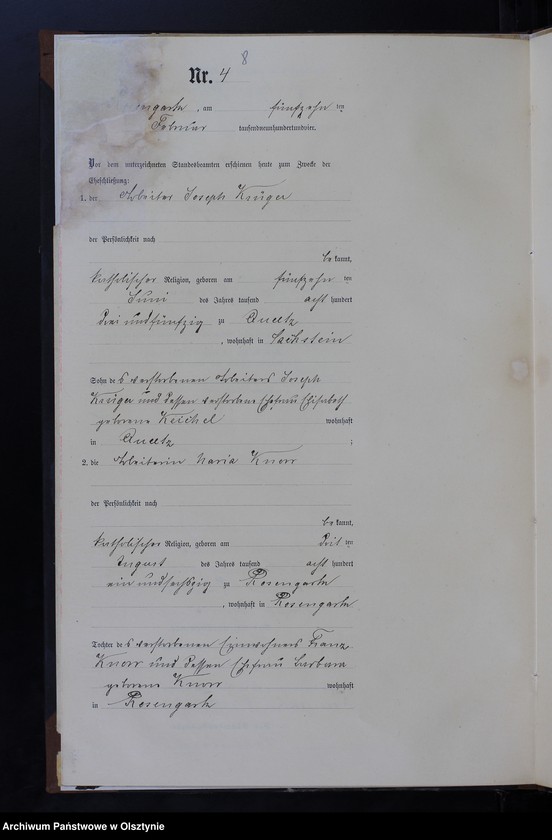 8
Nr. 4
engarth, am fünfzehn ten
Februar tausendneunhundertundvier.
Vor dem unterzeichneten Standesbeamten erschienen heute zum Zwecke der
Eheschließung:
1. der Arbeiter Joseph Krüger
der Persönlichkeit nach
be kannt,
katholischer Religion, geboren am fünfzehn ten
Juni des Jahres tausend acht hundert
drei und fünfzig zu Queetz
, wohnhaft in Sackstein
Sohn de s verstorbenen Arbeiters Joseph
Krüger und dessen verstorbene Ehefrau Elisabeth
geborene wohnhaft
in Queetz ;
2. die Arbeiterin Maria Knorr
der Persönlichkeit nach
be kannt,
katholischer Religion, geboren am ten
August des Jahres tausend acht hundert
ein und sechszig zu Rosengarth
, wohnhaft in Rosengarth
Tochter de s verstorbenen Einwohners Franz
Knorr und dessen Ehefrau Barbara
geborene Knorr wohnhaft
in Rosengarth
Archiwum Państwowe w Olsztynie